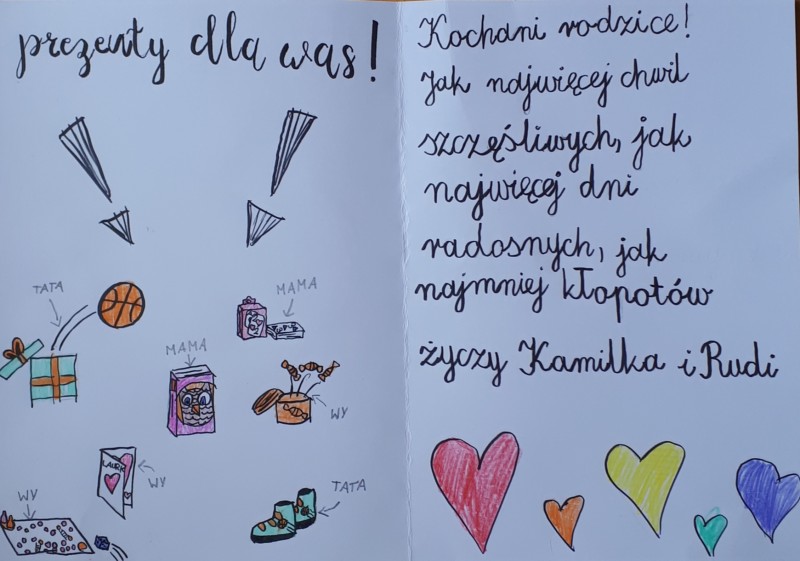 prezenty dla was!
TATA
MAMA
MAMA
WY
WY
WY
TATA
Kochani rodzice!
Jak najwięcej chwil
szczęśliwych, jak
najwięcej dni
radosnych, jak
najmniej kłopotów
życzy Kamilka i Rudi